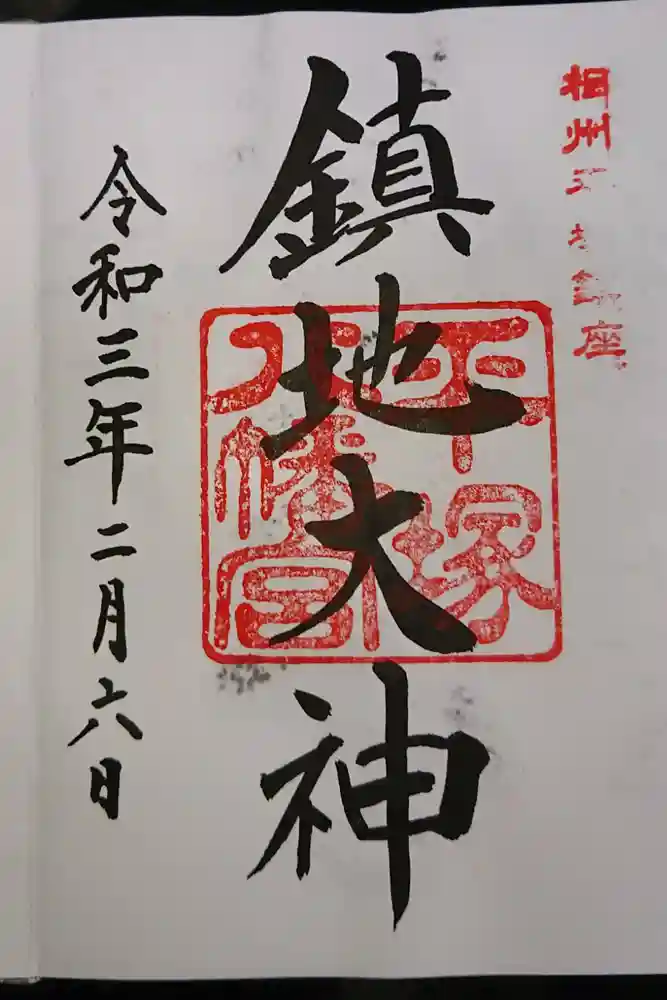 相州
座
鎮地大神
平塚
八幡宮
令和三年二月六日